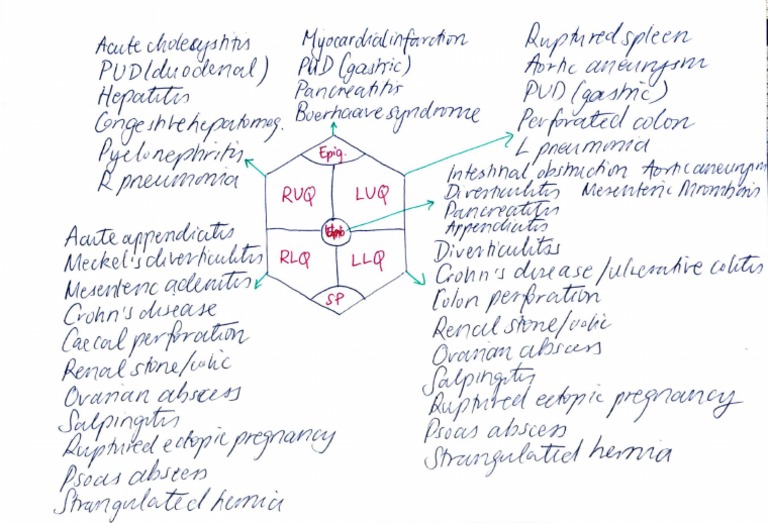 Acute cholecystitis
PUD (duodenal)
Hepatitis
Congestive hepatomeg.
Pyelonephritis
R pneumonia
Myocardial infarction
PUD (gastric)
Pancreatitis
Boerhaave syndrome
Ruptured spleen
Aortic aneurysm
PUD (gastric)
Perforated colon
L pneumonia
Intestinal obstruction Aortic aneurysm
Diverticulitis Mesenteric thrombosis
Pancreatitis
Appendicitis
Epig.
RUQ LUQ
RLQ LLQ
SP
Acute appendicitis
Meckel's diverticulitis
Mesenteric adenitis
Crohn's disease
Caecal perforation
Renal stone/colic
Ovarian abscess
Salpingitis
Ruptured ectopic pregnancy
Psoas abscess
Strangulated hernia
Diverticulitis
Crohn's disease / ulcerative colitis
Colon perforation
Renal stone/colic
Ovarian abscess
Salpingitis
Ruptured ectopic pregnancy
Psoas abscess
Strangulated hernia